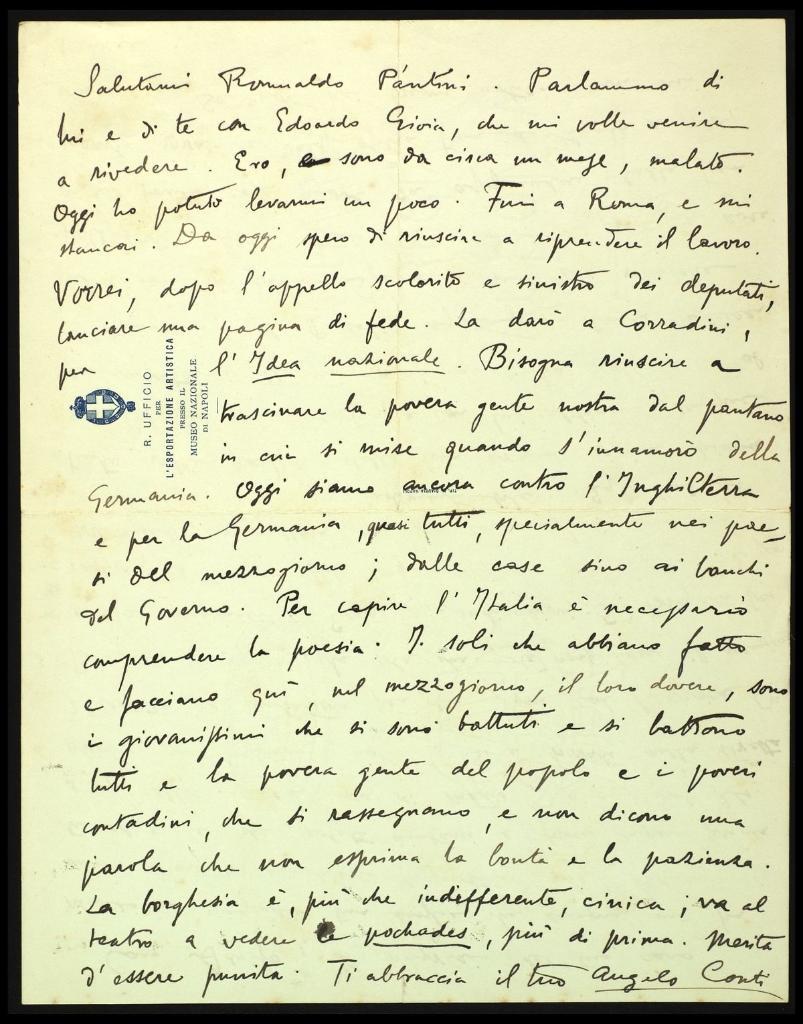 Salutami Romualdo Pántini. Parlammo di
lui e di te con Edoardo Gioia, che mi volle venire
a rivedere. Ero, e sono da circa un mese, malato.
Oggi ho potuto levarmi un poco. Fui a Roma, e mi
stancai. Da oggi spero di riuscire a riprendere il lavoro.
Vorrei, dopo l'appello scolorito e sinistro dei deputati,
lanciare una pagina di fede. La darò a Corradini,
per l'Idea nazionale. Bisogna riuscire a
R. UFFICIO
PER
L'ESPORTAZIONE ARTISTICA
PRESSO IL
MUSEO NAZIONALE
DI NAPOLI
trascinare la povera gente nostra dal pantano
in cui si mise quando s'innamorò della
Germania. Oggi siamo ancora contro l'Inghilterra
e per la Germania, quasi tutti, specialmente nei pae-
si del mezzogiorno; dalle case sino ai banchi
del Governo. Per capire l'Italia è necessario
comprendere la poesia. I soli che abbiano fatto
e facciano qui, nel mezzogiorno, il loro dovere, sono
i giovanissimi che si sono battuti e si battono
tutti e la povera gente del popolo e i poveri
contadini, che si rassegnano, e non dicono una
parola che non esprima la bontà e la pazienza.
La borghesia è, più che indifferente, cinica; va al
teatro a vedere le pochades, più di prima. Merita
d'essere punita. Ti abbraccia il tuo Angelo Conti